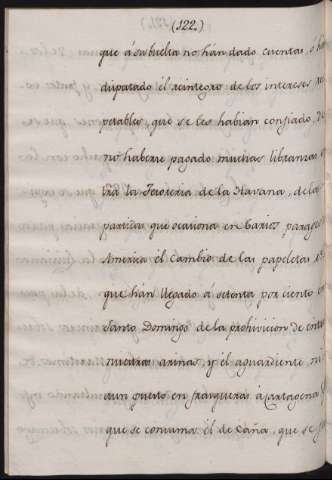 (122)
que á su buelta no hán dado cuentas, ó h
disputado él reintegro de los intereses
potables, que se les habian confiado, de
no haberse pagado muchas libranzas
tra la Tesoreria de la Havana, de la
partiza que ocasiona en barios parages
America él cambio de las papeletas
que hán llegado á setenta por ciento en
Santo Domingo de la prohivicion de
nuestras arinas, y él aguardiente, ni
aun puerto en franqueras á Cartagena
que se consuma él de Caña, que se